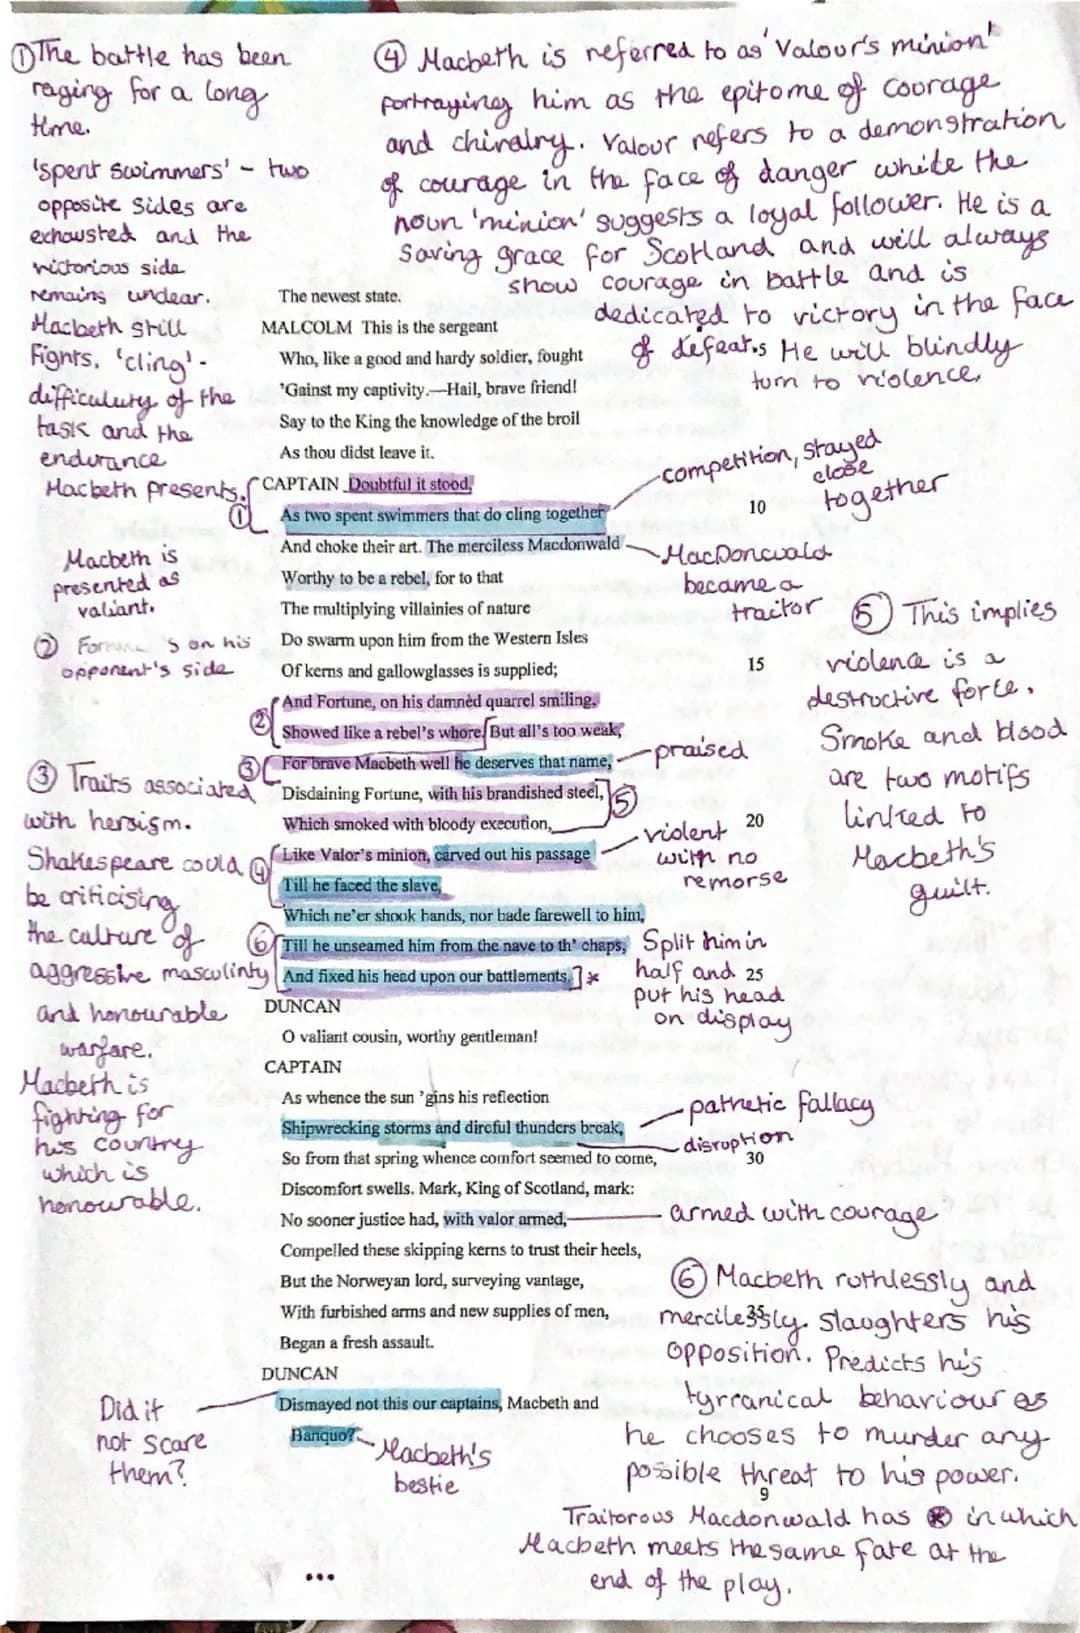 ① The battle has been
raging for a long
time.
'spent swimmers' - two
opposite sides are
exhausted and the
victorious side
remains unclear.
Macbeth still
Fights. 'cling' -
difficulty of the
task and the
endurance
Macbeth presents.
Macbeth is
presented as
valiant.
② 's on his
opponent's side
③ Traits associated
with heroism.
Shakespeare could
be criticising
the culture of
aggressive masculinty
and honourable
warfare.
Macbeth is
fighting for
his country
which is
honourable.
Did it
not scare
them?
④ Macbeth is referred to as 'Valour's minion'
portraying him as the epitome of courage
and chivalry. Valour refers to a demonstration
of courage in the face of danger while the
noun 'minion' suggests a loyal follower. He is a
saving grace for Scotland and will always
show courage in battle and is
dedicated to victory in the face
of defeat. He will blindly
turn to violence.
The newest state.
MALCOLM This is the sergeant
Who, like a good and hardy soldier, fought
'Gainst my captivity.—Hail, brave friend!
Say to the King the knowledge of the broil
As thou didst leave it. 5
CAPTAIN Doubtful it stood,
① As two spent swimmers that do cling together 10
And choke their art. The merciless Macdonwald
Worthy to be a rebel, for to that
The multiplying villainies of nature
Do swarm upon him from the Western Isles
Of kerns and gallowglasses is supplied; 15
② And Fortune, on his damnèd quarrel smiling,
Showed like a rebel's whore. But all's too weak,
③ For brave Macbeth well he deserves that name,
Disdaining Fortune, with his brandished steel, ⑤
Which smoked with bloody execution, 20
④ Like Valor's minion, carved out his passage
Till he faced the slave,
Which ne'er shook hands, nor bade farewell to him,
⑥ Till he unseamed him from the nave to th' chaps,
And fixed his head upon our battlements. * 25
DUNCAN
O valiant cousin, worthy gentleman!
CAPTAIN
As whence the sun 'gins his reflection
Shipwrecking storms and direful thunders break,
So from that spring whence comfort seemed to come, 30
Discomfort swells. Mark, King of Scotland, mark:
No sooner justice had, with valor armed,
Compelled these skipping kerns to trust their heels,
But the Norweyan lord, surveying vantage,
With furbished arms and new supplies of men, 35
Began a fresh assault.
DUNCAN
Dismayed not this our captains, Macbeth and
Banquo?
competition, stayed
close
together
MacDonwald
became a
traitor
praised
violent
with no
remorse
Split him in
half and
put his head
on display
pathetic fallacy
disruption
armed with courage
Macbeth's
bestie
⑤ This implies
violence is a
destructive force.
Smoke and blood
are two motifs
linked to
Macbeth's
guilt.
⑥ Macbeth ruthlessly and
mercilessly slaughters his
opposition. Predicts his
tyrranical behaviour as
he chooses to murder any
possible threat to his power.
9
Traitorous Macdonwald has * in which
Macbeth meets the same fate at the
end of the play.
...